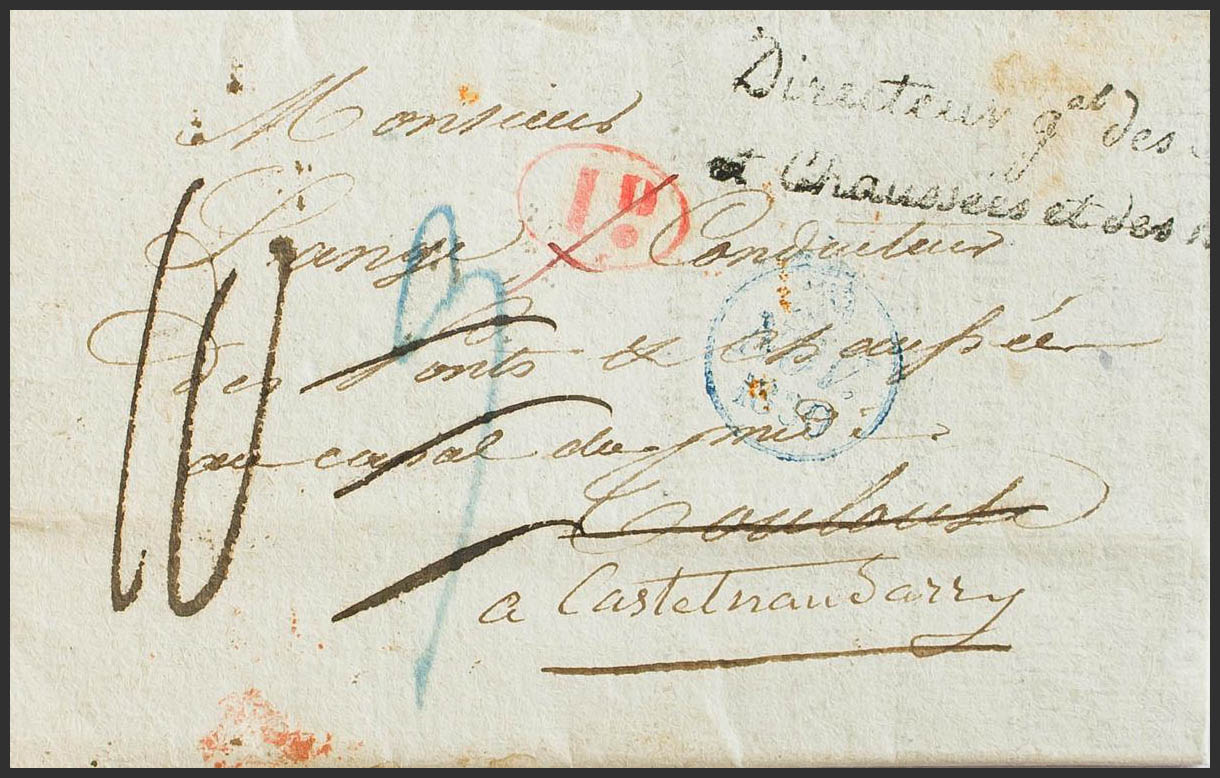 Directeur gal des
et Chaussées et des
Monsieur
P.P.
Conducteur
des Ponts et chaussées
au canal du midi
Toulouse
a Castelnaudarry